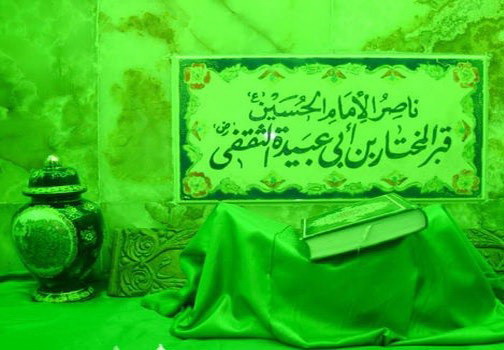 ناصر الإمام الحسين ع
قبر المختار بن أبي عبيدة الثقفي رض